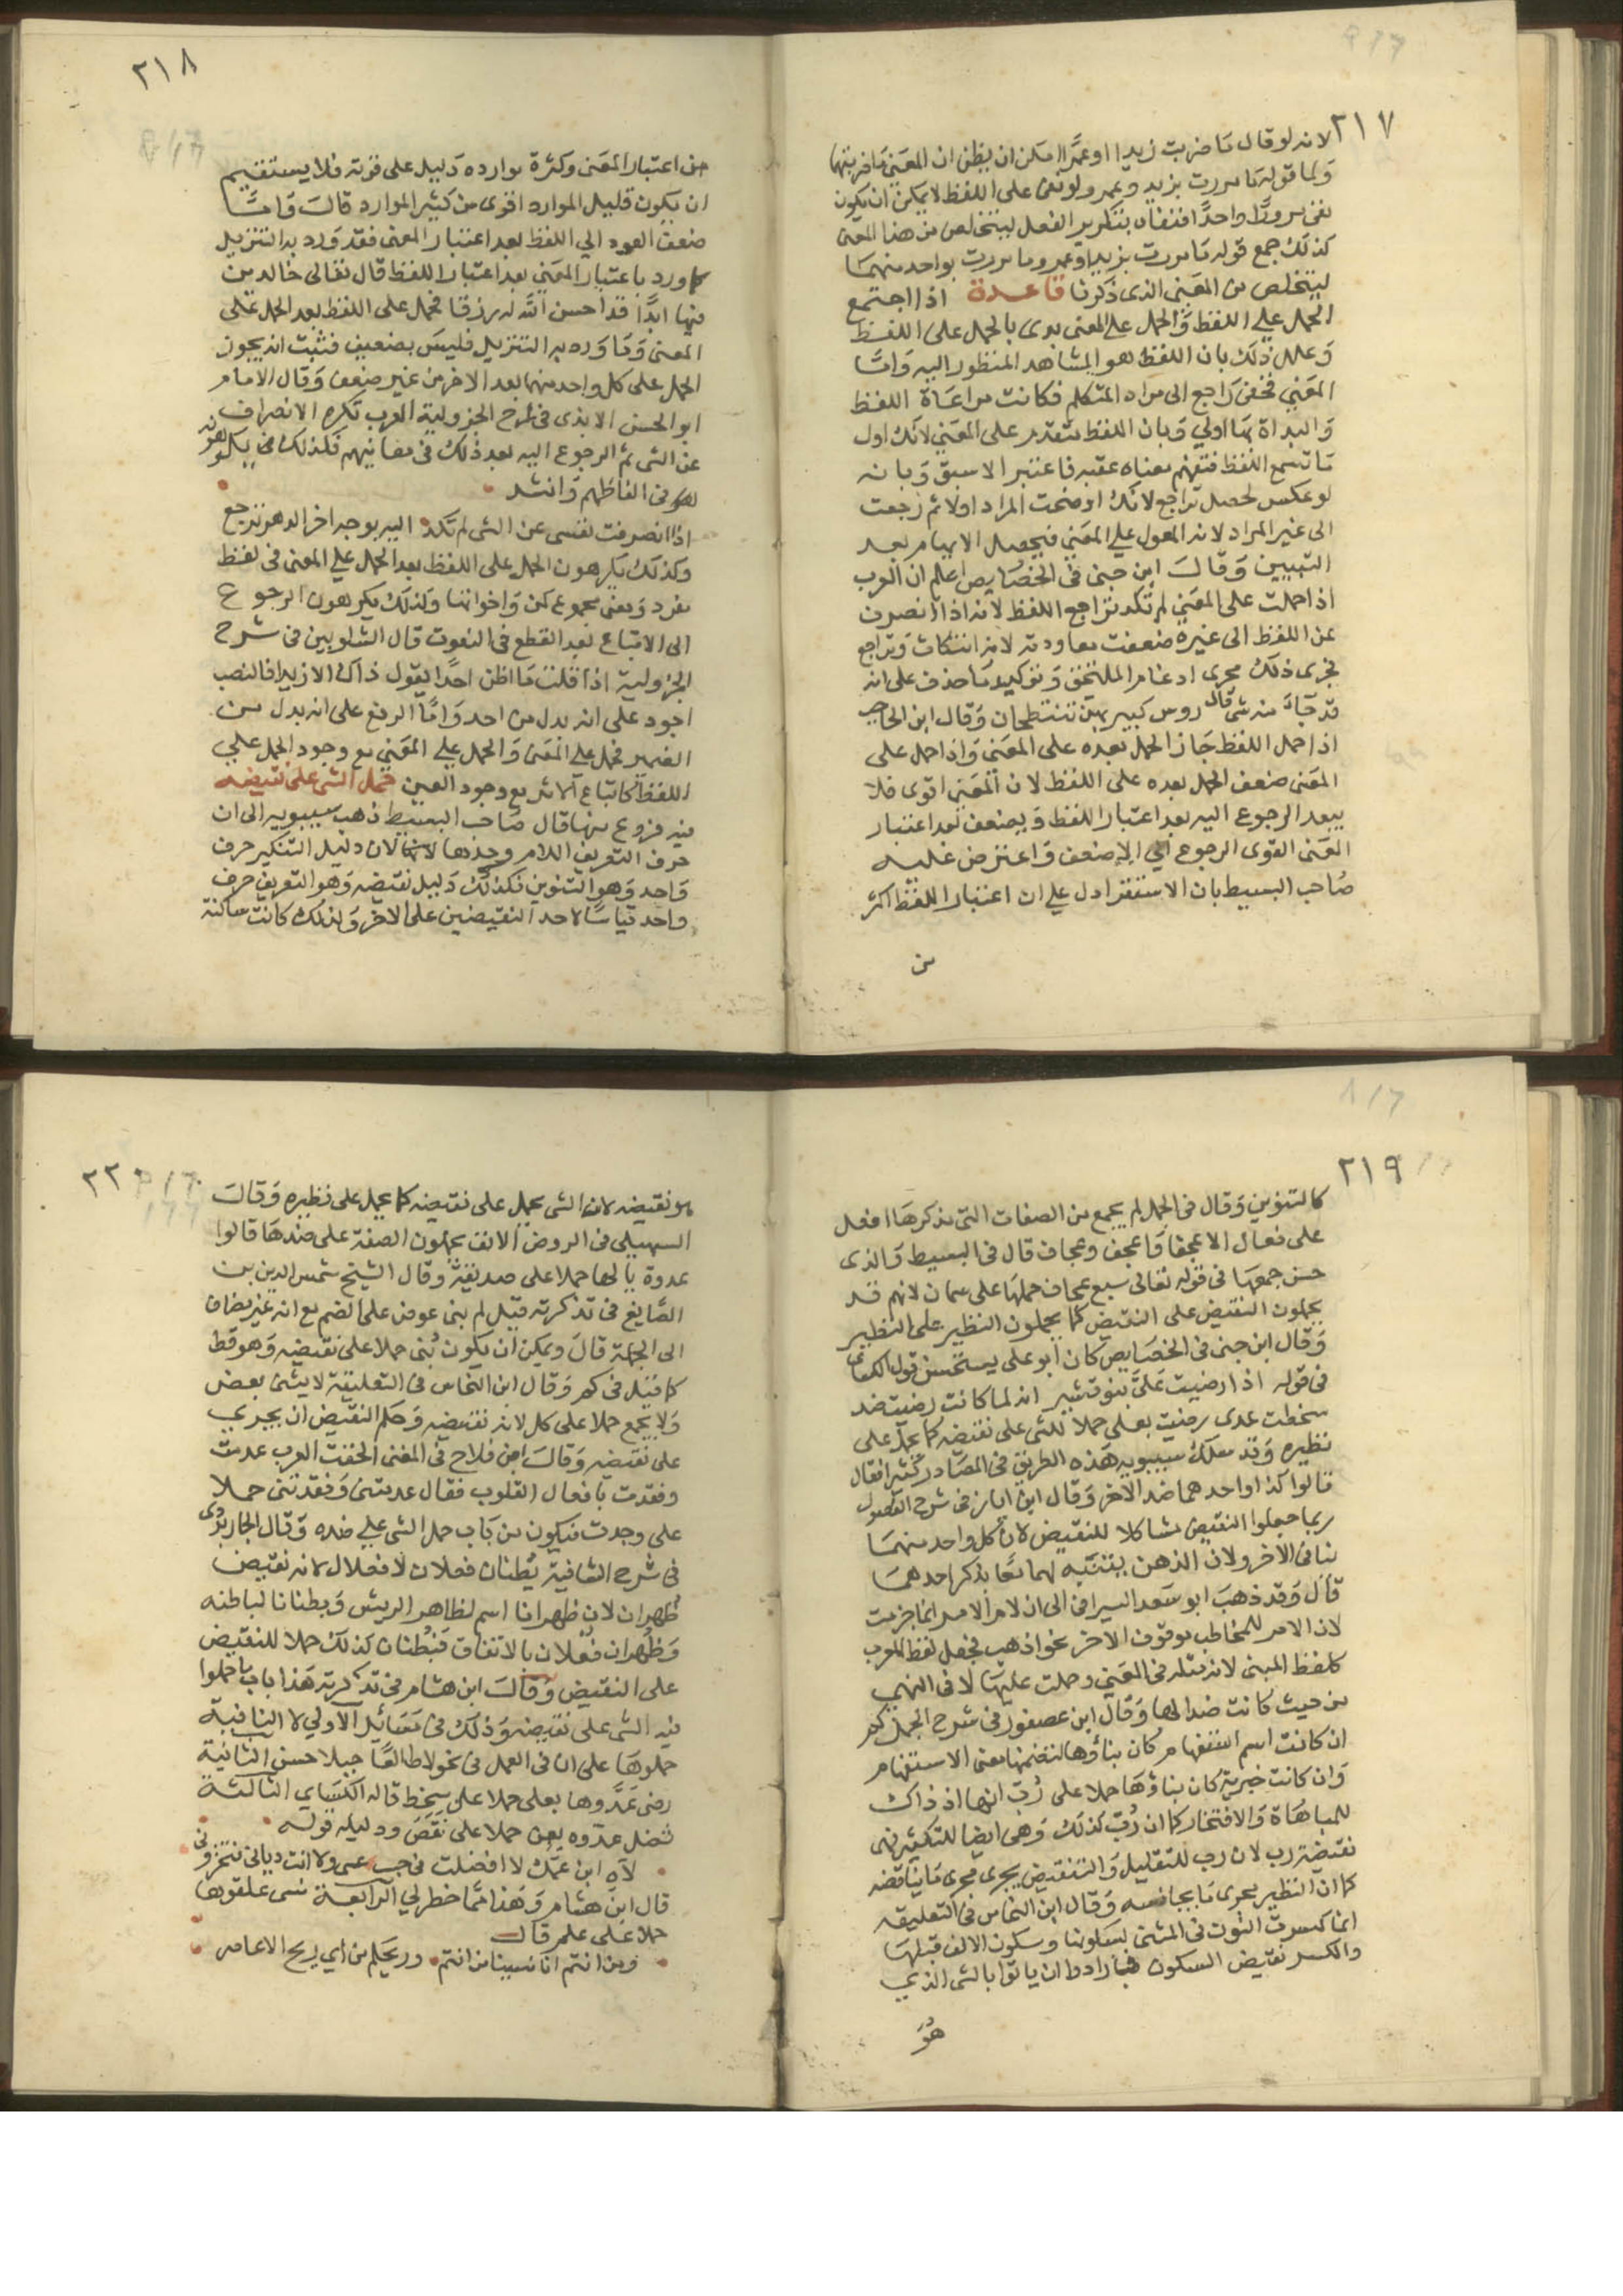 ٢١٧
لانه لو قال ما ضربت زيدا او عمرا لامكن ان يظن ان المعنى ما ضربتهما
ولما قوله ما مررت بزيد وعمرو لو نفى على اللفظ لا يمكن ان يكون
نفى مرورا واحدا فنفاه بتكرير الفعل ليتخلص من هذا المعنى
كذلك جمع قوله ما مررت بزيد او عمرو وما مررت بواحد منهما
ليتخلص من المعنى الذى ذكرنا قاعدة اذا اجتمع
الحمل على اللفظ والحمل على المعنى بدى بالحمل على اللفظ
وعلل ذلك بان اللفظ هو المشاهد المنظور اليه واما
المعنى فخفى راجع الى مراد المتكلم فكانت مراعاة اللفظ
والبداة بها اولى وبان اللفظ متقدم على المعنى لانك اول
ما تسمع اللفظ فتفهم معناه عقبه فاعتبر الاسبق وبانه
لو عكس لحصل تراجع لانك اوضحت المراد اولا ثم رجعت
الى غير المراد لان المعول على المعنى فيحصل الابهام بعد
التبيين وقال ابن جنى فى الخصايص اعلم ان العرب
اذا حملت على المعنى لم تكد تراجع اللفظ لانه اذا انصرف
عن اللفظ الى غيره ضعفت معاودته لانه انتكاث وتراجع
فجرى ذلك مجرى ادغام الملحق وتوكيد ما حذف على انه
قد جاء منه شى قال روس كبيريهن تنتطحان وقال ابن الحاجب
اذا حمل اللفظ جاز الحمل بعده على المعنى واذا حمل على
المعنى ضعف الحمل بعده على اللفظ لان المعنى اقوى فلا
يبعد الرجوع اليه بعد اعتبار اللفظ ويضعف بعد اعتبار
المعنى القوى الرجوع الى الاضعف واعترض عليه
صاحب البسيط بان الاستقرا دل على ان اعتبار اللفظ اكثر
من
٢١٨
من اعتبار المعنى وكثرة موارده دليل على قوته فلا يستقيم
ان يكون قليل الموارد اقوى من كثير الموارد قال واما
ضعف العود الى اللفظ بعد اعتبار المعنى فقد ورد به التنزيل
كما ورد باعتبار المعنى بعد اعتبار اللفظ قال تعالى خالدين
فيها ابدا قد احسن الله له رزقا فحمل على اللفظ بعد الحمل على
المعنى وما ورد به التنزيل فليس بضعيف فثبت انه يجوز
الحمل على كل واحد منهما بعد الاخر من غير ضعف وقال الامام
ابو الحسن الابذى فى شرح الجزولية العرب تكره الانصراف
عن الشى ثم الرجوع اليه بعد ذلك فى معانيهم فكذلك يكرهونه
فى الفاظهم وانشد
اذا انصرفت نفسى عن الشى لم تكد اليه بوجه اخر الدهر ترجع
وكذلك يكرهون الحمل على اللفظ بعد الحمل على المعنى فى لفظ
مفرد ومعنى مجموع كمن واخواتها ولذلك يكرهون الرجوع
الى الاتباع بعد القطع فى النعوت قال الشلوبين فى شرح
الجزولية اذا قلت ما اظن احدا يقول ذاك الا زيدا فالنصب
اجود على انه بدل من احد واما الرفع على انه بدل من
الضمير فحمل على المعنى والحمل على المعنى مع وجود الحمل على
اللفظ كاتباع الاثر مع وجود العين حمل الشى على نقيضه
فيه فروع منها قال صاحب البسيط ذهب سيبويه الى ان
حرف التعريف اللام وحدها لان دليل التنكير حرف
واحد وهو التنوين فكذلك دليل نقيضه وهو التعريف حرف
واحد قياسا لاحد النقيضين على الاخر ولذلك كانت ساكنة
٢١٩
كالتنوين وقال فى الجمل لم يجمع من الصفات التى مذكرها افعل
على فعال الا عجفا واعجف وعجاف قال فى البسيط والذى
حسن جمعها فى قوله تعالى سبع عجاف حملها على سمان لانهم قد
يحملون النقيض على النقيض كما يحملون النظير على النظير
وقال ابن جنى فى الخصايص كان ابو على يستحسن قول الكساى
فى قوله اذا رضيت على بنو قشير انه لما كانت رضيت ضد
سخطت عدى رضيت بعلى حملا للشى على نقيضه كما يحمل على
نظيره وقد سلك سيبويه هذه الطريق فى المصادر كثيرا فقال
قالوا كذا واحدهما ضد الاخر وقال ابن اياز فى شرح الفصول
ربما جعلوا النقيض مشاكلا للنقيض لان كل واحد منهما
ينافى الاخر ولان الذهن يتنبه لهما معا بذكر احدهما
قال وقد ذهب ابو سعد السيرافى الى ان لام الامر انما جزمت
لان الامر للمخاطب موقوف الاخر نحو اذهب فجعل لفظ المعرب
كلفظ المبنى لانه مثله فى المعنى وحملت عليها لا فى النهى
من حيث كانت ضدا لها وقال ابن عصفور فى شرح الجمل كم
ان كانت اسم استفهام كان بناؤها لتضمنها معنى الاستفهام
وان كانت خبرية كان بناؤها حملا على رب انها اذ ذاك
للمباهاة والافتخار كما ان رب كذلك وهى ايضا للتكثير فهى
نقيضة رب لان رب للتقليل والنقيض يجرى مجرى ما يناقضه
كما ان النظير يجرى ما يجانسه وقال ابن النحاس فى التعليقه
انما كسرت النون فى المثنى لسكونها وسكون الالف قبلها
والكسر نقيض السكون فارادوا ان ياتوا بالشى الذى
هو
٢٢٠
هو نقيضه لان الشى يحمل على نقيضه كما يحمل على نظيره وقال
السهيلى فى الروض الانف يحملون الصفة على ضدها قالوا
عدوة بالها حملا على صديقة وقال الشيخ شمس الدين بن
الصايغ فى تذكرته قيل لم بنى عوض على الضم مع انه غير مضاف
الى الجملة قال ويمكن ان يكون بنى حملا على نقيضه وهو قط
كما قيل فى كم وقال ابن النحاس فى التعليقة لا يثنى بعض
ولا يجمع حملا على كل لانه نقيضه وحكم النقيض ان يجرى
على نقيضه وقال ابن فلاح فى المغنى الحقت العرب عدمت
وفقدت بافعال القلوب فقال عدمتنى وفقدتنى حملا
على وجدت فيكون من باب حمل الشى على ضده وقال الجاربردى
فى شرح الشافية بطنان فعلان لا فعلال لانه نقيض
ظهران لان ظهرانا اسم لظاهر الريش وبطنانا لباطنه
وظهران فعلان بالاتفاق فبطنان كذلك حملا للنقيض
على النقيض وقال ابن هشام فى تذكرته هذا باب ما حملوا
فيه الشى على نقيضه وذلك فى مسائل الاولى لا النافية
حملوها على ان فى العمل فى نحو لا طالعا جبلا حسن الثانية
رضى عدوها بعلى حملا على سخط قاله الكساى الثالثة
فضل عدوه بعن حملا على نقص ودليله قوله
لاه ابن عمك لا افضلت فى حسب عنى ولا انت ديانى فتخزونى
قال ابن هشام وهذا مما خطر لى الرابعة نسى علقوها
حملا على علم قال
ومن انتم انا نسينا من انتم وريحكم من اى ريح الاعاصر